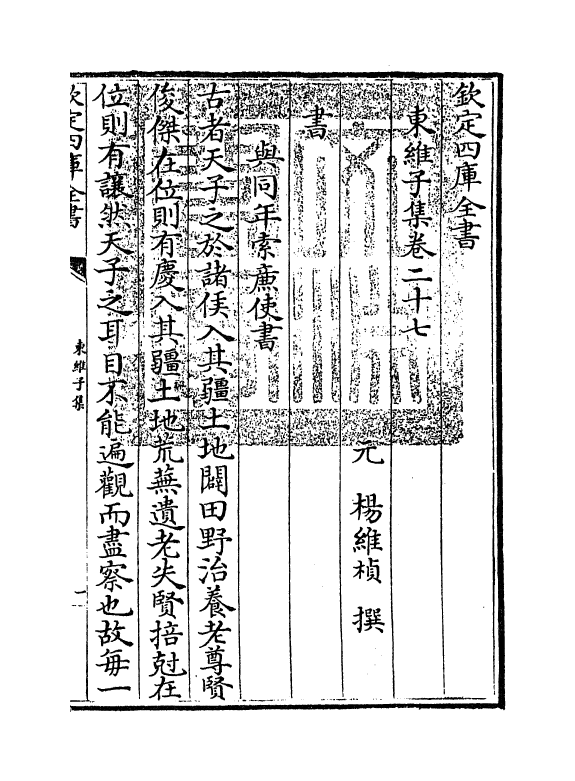 欽定四庫全書
東維子集卷二十七
元 楊維楨 撰
書
與同年索廉使書
古者天子之於諸侯入其疆土地闢田野治養老尊賢
俊傑在位則有慶入其疆土地荒蕪遺老失賢掊尅在
位則有讓然天子之耳目不能遍觀而盡察也故每一
欽定四庫全書
東維子集
一